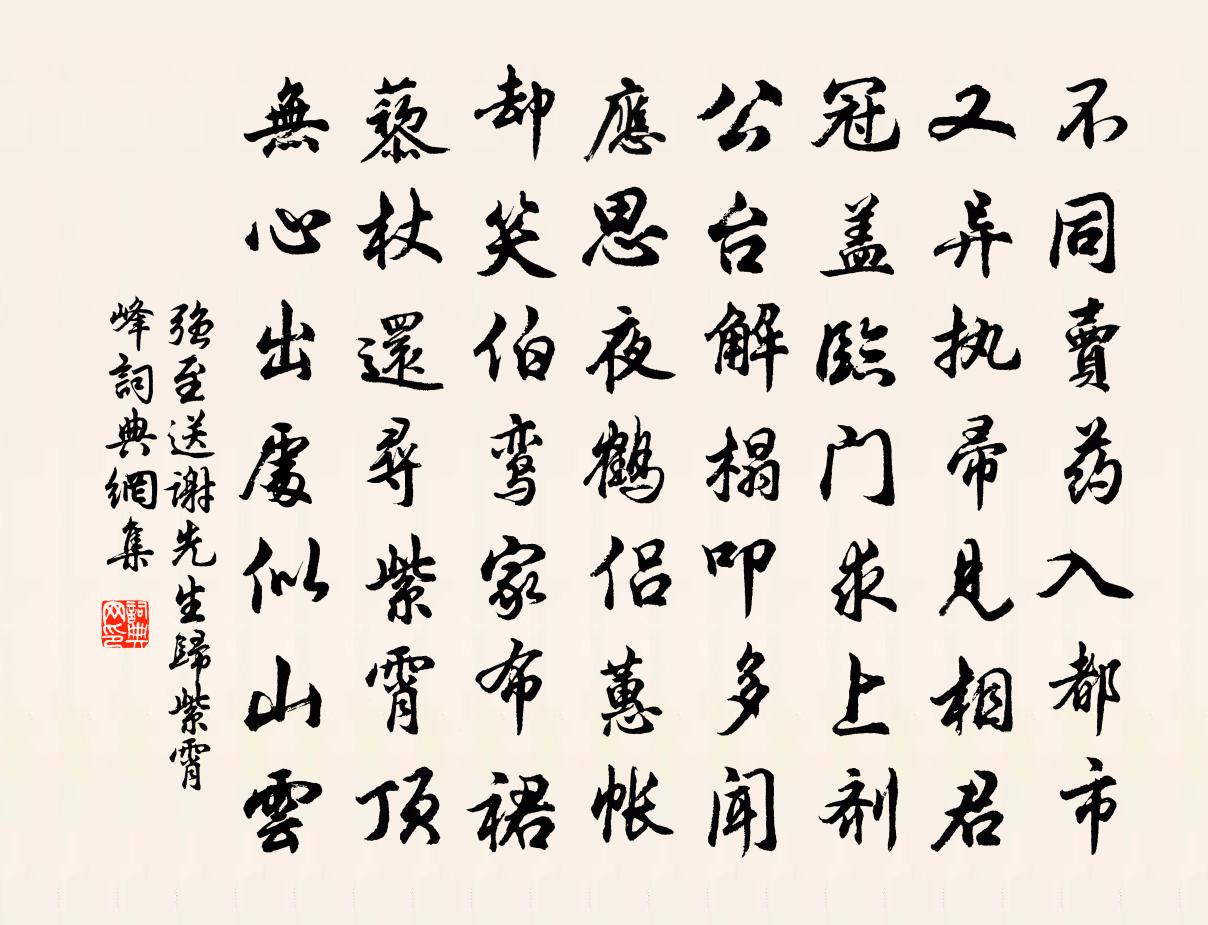 不同賣药入都市
又异执帚見相君
冠盖臨门求上剂
公台解榻叩多闻
應思夜鶴侣蕙帐
却笑伯鸾家布裙
藜杖還尋紫霄顶
無心出處似山雲
强至送谢先生歸紫霄
峰詞典網集
詞典网印